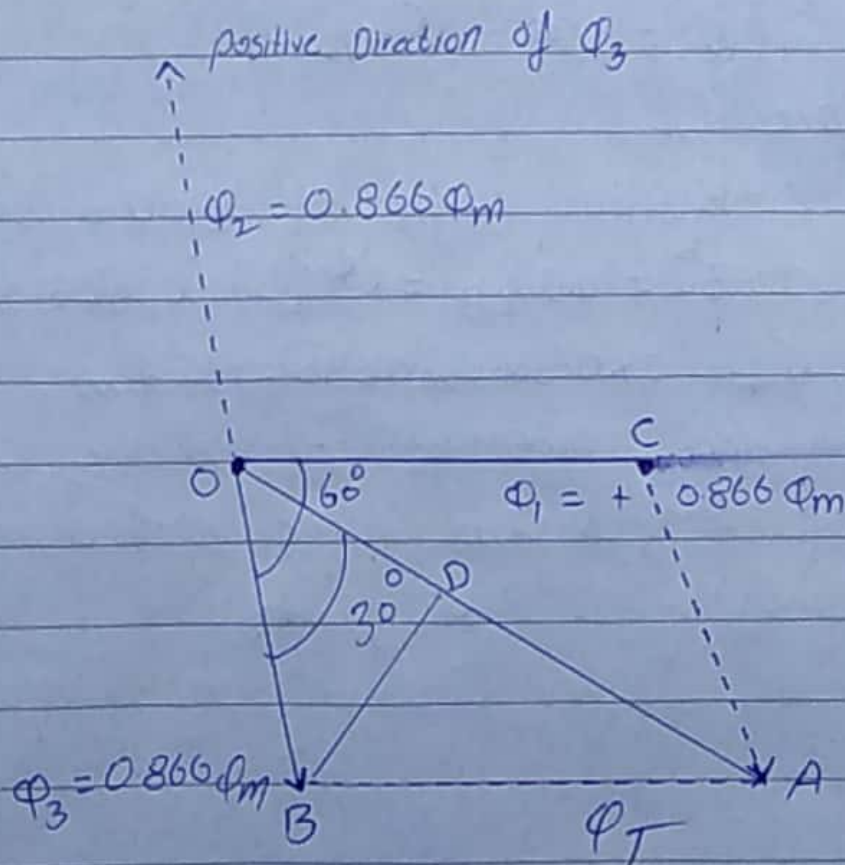 positive Direction of Φ₃
φ₂ = 0.866 Φm
C
O
60°
Φ₁ = + 0866 Φm
D
30
φ₃ = 0.866 φm
B
A
φT